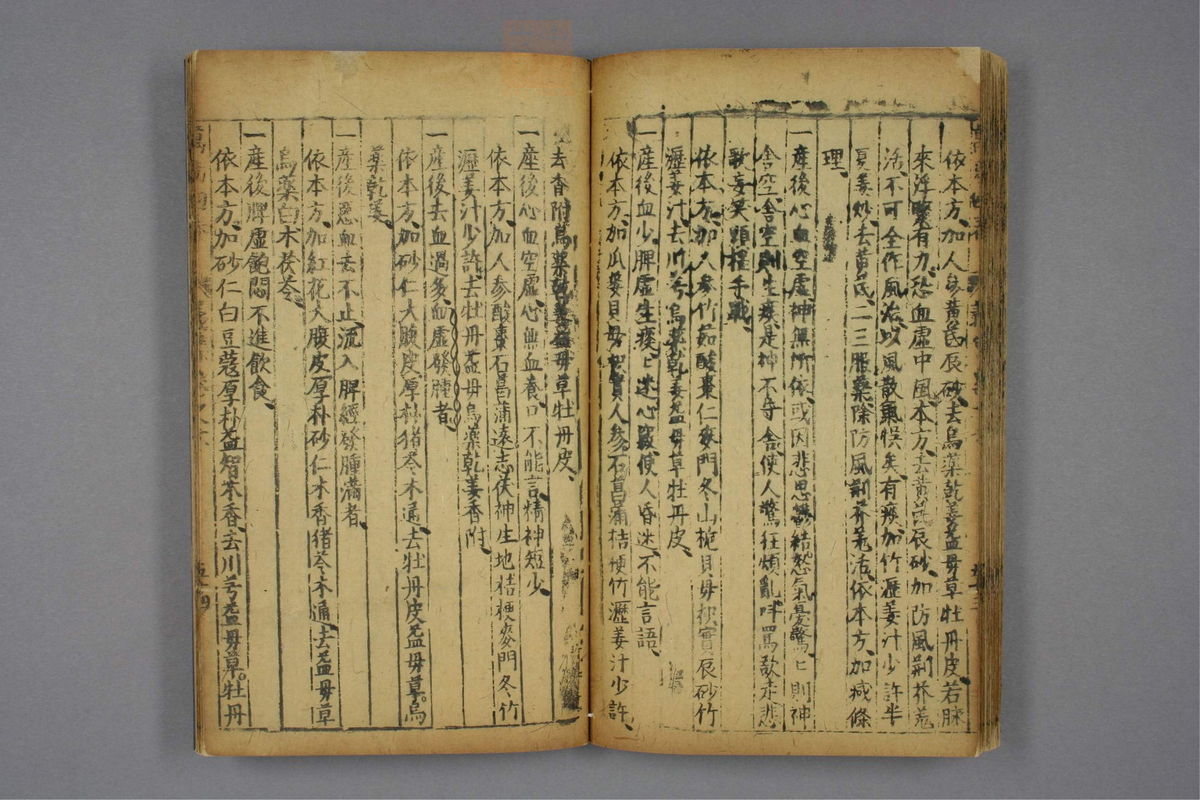 依本方、加人參黃芪辰砂、去烏藥乾姜益毋草牡丹皮若脉
來浮緊有力、恐血虛中風、本方、去黃芪辰砂、加防風荊芥羌
活、不可全作風治、以風散氣候矣、有痰加竹瀝姜汁少許半
夏姜炒、去黃芪、二三服藥、除防風荊芥羌活、依本方、加减條
理、
一產後心血空虛、神無所依、或因悲思鬱結怒氣憂驚、匕則神
舍空、舍空則生痰、是神不守舍、使人驚狂煩亂、呌罵欲走、悲
歌妄笑、頭搖手戰、
依本方、加人參竹茹酸棗仁麥門冬山梔貝毋枳實辰砂竹
瀝姜汁、去川芎烏藥乾姜益毋草牡丹皮、
一產後血少、脾虛生痰、匕迷心竅、使人昏迷、不能言語、
依本方、加瓜蔞貝毋枳實人參石菖蒲桔梗竹瀝姜汁少許、
去香附烏藥乾姜益毋草牡丹皮、
一產後心血空虛、心無血養、口不能言、精神短少、
依本方、加人參酸棗石菖蒲遠志茯神生地桔梗麥門冬竹
瀝姜汁少許、去牡丹益毋烏藥乾姜香附、
一產後去血過多、血虛發腫者、
依本方、加砂仁大腹皮厚朴猪苓木通、去牡丹皮益毋草。烏
藥乾姜、
一產後惡血去不止、流入脾經、發腫滿者、
依本方、加紅花大腹皮厚朴砂仁木香猪苓木通、去益毋草
烏藥白术茯苓、
一產後脾虛飽悶、不進飲食、
依本方、加砂仁白豆蔻厚朴益智木香、去川芎益毋草。牡丹